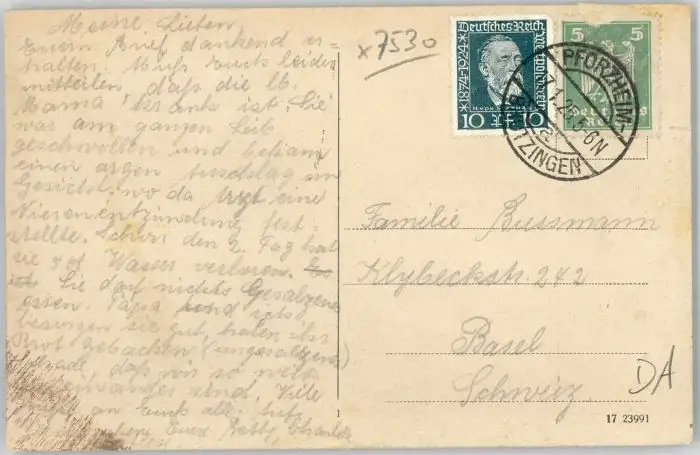 Meine Lieben,
Euern Brief dankend er-
halten. Muß Euch leider
mitteilen, daß die lb.
Mama krank ist. Sie
war am ganzen Leib
geschwollen und bekam
einen argen Ausschlag im
Gesicht, wo da Arzt eine
Nierenentzündung fest-
stellte. Schon den 2. Tag hat
sie Wasser verloren.
Sie darf nichts Gesalzenes
essen. Papa und ich
besorgen sie gut, haben ihr
Brot gebacken (ungesalzenes)
daß wir so weit
einander sind. Viele
an Euch alle
Eure
x7530
Deutsches Reich
1874-1924
H.v. STEPHAN
10 10
5 5
PFORZHEIM-
BRÖTZINGEN
Familie Bussmann
Klybeckstr. 242
Basel
Schweiz.
DA
1
17 23991